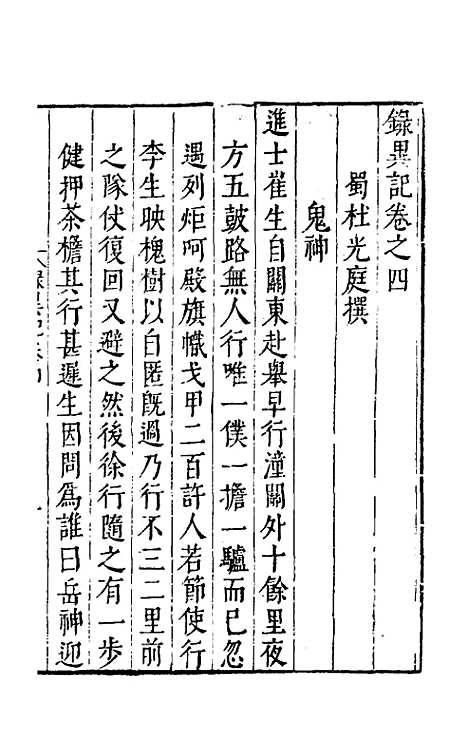 錄異記卷之四
蜀杜光庭撰
鬼神
進士崔生自關東赴舉早行潼關外十餘里夜
方五鼓路無人行唯一僕一擔一驢而已忽
遇列炬呵殿旗幟戈甲二百許人若節使行
李生映槐樹以自匿既過乃行不三二里前
之隊仗復回又避之然後徐行隨之有一步
健押茶檐其行甚遲生因問為誰曰岳神迎